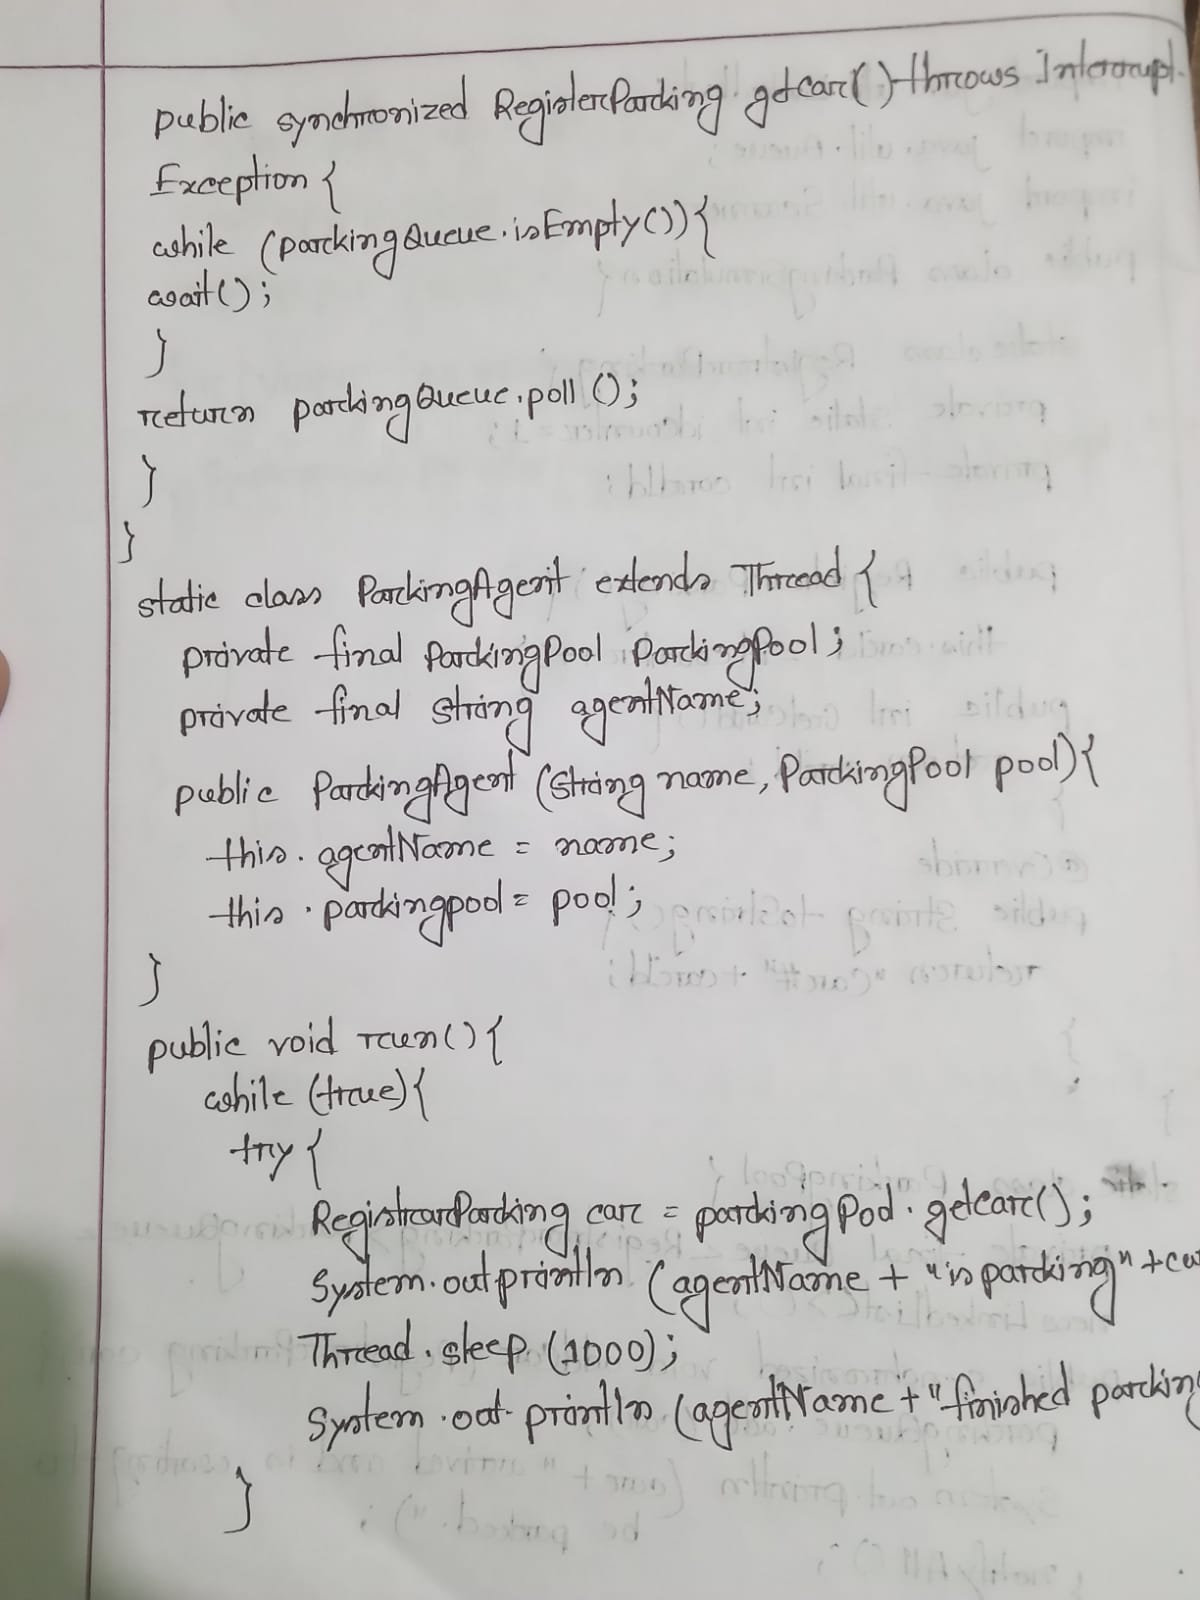 public synchronized RegisterParking getcar() throws Interrupt
Exception {
while (parkingQueue.isEmpty()) {
wait();
}
return parkingQueue.poll();
}
}
static class ParkingAgent extends Thread {
private final ParkingPool ParkingPool;
private final string agentName;
public ParkingAgent (String name, ParkingPool pool) {
this.agentName = name;
this.parkingpool = pool;
}
public void run() {
while (true) {
try {
RegistrarParking car = parkingPool.getcar();
System.out println (agentName + "is parking" + ca
Thread.sleep (1000);
System.out.println (agentName + "finished parking
}